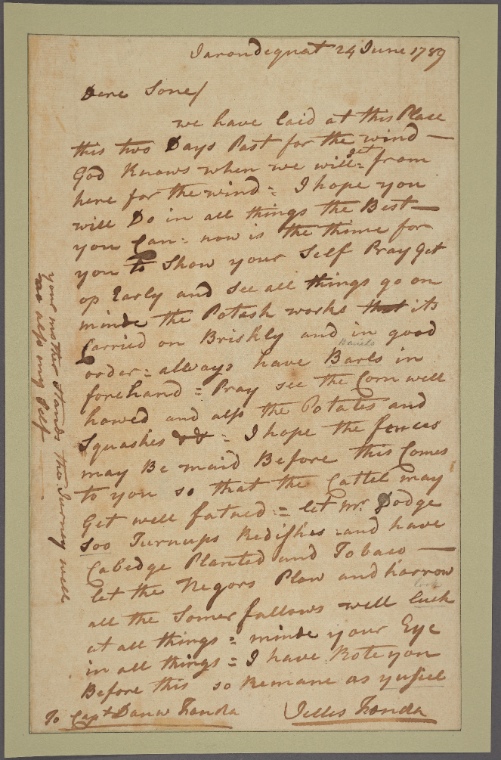 Jarondequat 24 June 1789
Dare Sone/
we have laid at this Place
this two Days Past for the wind —
God Knows when we will Jet from
here for the wind = I hope you
will Do in all things the Best —
you Can = now is the thime for
you to Show your Self Pray Get
op Early and see all things go on
minde the Potash works that its
Carried on Briskly and in good
order = always have Barls in
Barrels
forehand = Pray see the Corn well
howed and also the Potates and
Squashes &c = I hope the fences
may Be maid Before this Comes
to you so that the Cattel may
Get well fatned = let Mr. Dodge
Soo Turnups Redishes - and have
Cabedge Planted and Tobaco —
let the Negors Plow and harrow
all the Somer fallows well luck
at all things = minde your Eye
in all things = I have Rote you
Before this so Remane as yusiel
Jelles Fonda
To Capt Douw Fonda
your mother Stands the Jurney well
as also my Self